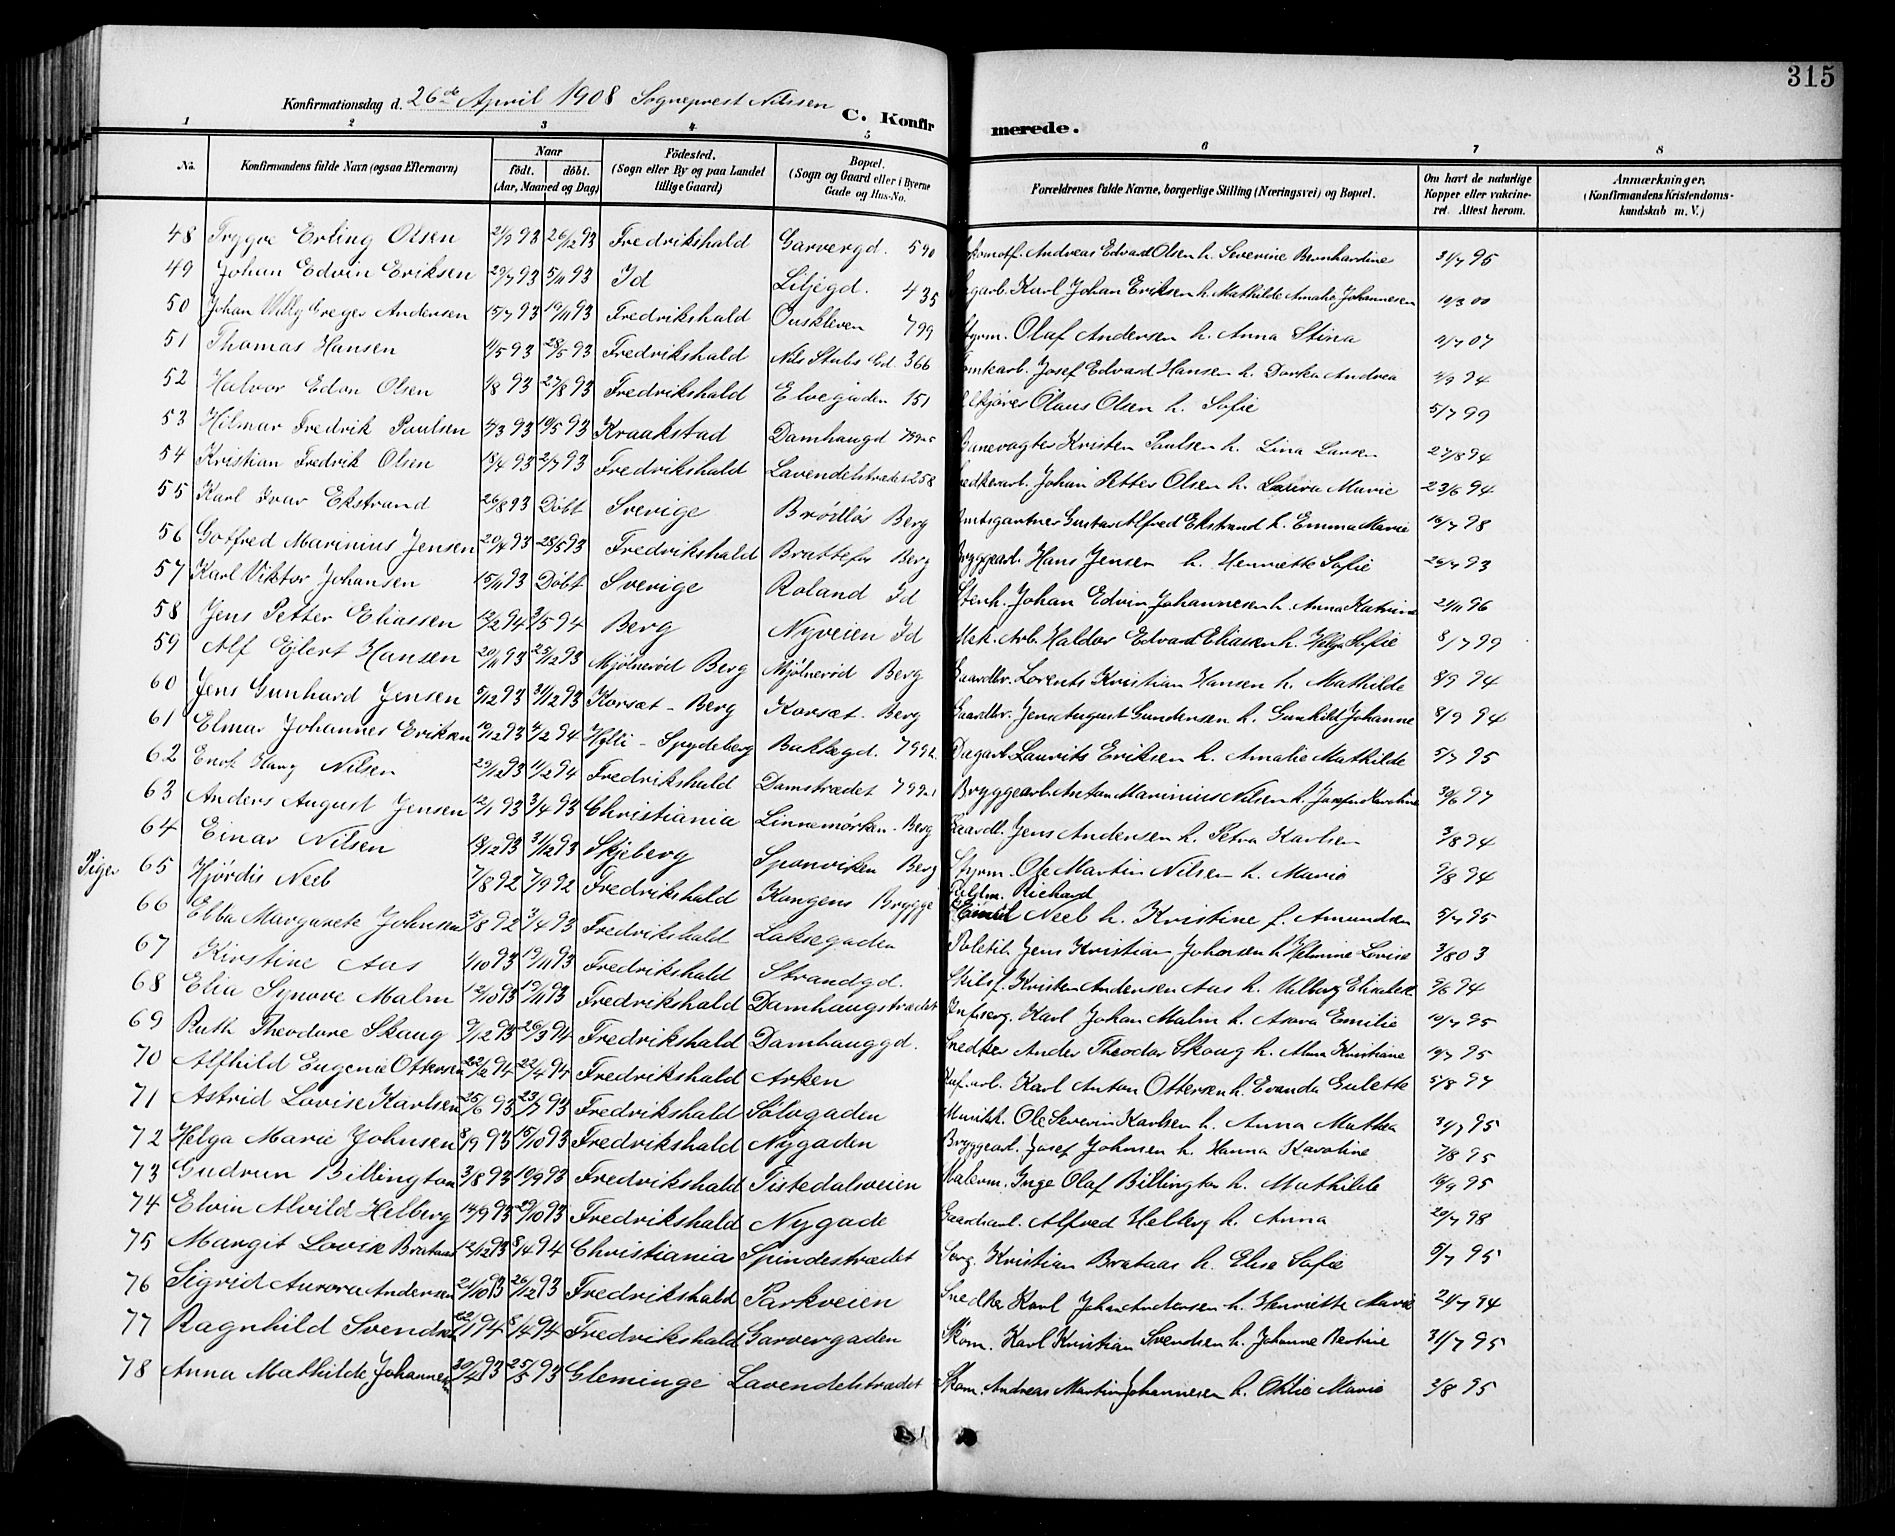 315
Konfirmationsdag d. 26de April 1908 Sogneprest Nilssen
C. Konfirmerede.
1 2 3 4 5 6 7 8
No. Konfirmandens fulde Navn (ogsaa Efternavn) Naar født. døbt. (Aar, Maaned og Dag) Fødested. (Sogn eller By og paa Landet tillige Gaard) Bopæl. (Sogn og Gaard eller i Byerne Gade og Hus-No. Forældrenes fulde Navne, borgerlige Stilling (Næringsvei) og Bopæl. Om havt de naturlige Kopper eller vakcineret. Attest herom. Anmærkninger, (Konfirmandens Kristendomskundskab m. V.)
48 Trygve Erling Olsen 2/9 93 26/12 93 Fredrikshald Garvergd. 590 Andreas Edvard Olsen h. Severine Bernhardine 31/7 95
49 Johan Edvin Eriksen 29/7 93 5/11 93 Id Liljegd. 435 Karl Johan Eriksen h. Mathilde Amalie Johannesen 10/3 00
50 Johan Willy Greger Andersen 15/7 93 19/11 93 Fredrikshald Ouskleven 799 Styrm. Olaf Andersen h. Anna Stina 9/7 07
51 Thomas Hansen 4/5 93 28/5 93 Fredrikshald Nils Stubs Gd. 366 Josef Edvard Hansen h. Dorka Andrea 4/9 94
52 Halvor Edon Olsen 1/8 93 27/8 93 Fredrikshald Elvegaden 151 Olaus Olsen h. Sofie 5/7 99
53 Hilmar Fredrik Paulsen 4/3 93 19/5 93 Kraakstad Damhaugd Banevogter Kristen Paulsen h. Lina Larsen 27/8 94
54 Kristian Fredrik Olsen 18/4 93 2/7 93 Fredrikshald Lavendelstrædet 258 Snedkerarb. Johan Petter Olsen h. Lovisa Marie 23/6 94
55 Karl Ivar Ekstrand 26/8 93 Døbt Sverige Brødløs Berg Amtsgartner Gustav Alfred Ekstrand h. Emma Marie 16/7 98
56 Gotfred Marinius Jensen 20/4 93 28/5 93 Fredrikshald Brattefos Berg Bryggearb. Hans Jensen h. Henriette Sofie 26/7 93
57 Karl Viktor Johansen 15/11 93 Døbt Sverige Roland Id Stenh. Johan Edvin Johannesen h. Anna Katrine 21/11 96
58 Jens Petter Eliassen 12/2 94 3/5 94 Berg Nyveien Id Mek. Arb. Haldor Edvard Eliassen h. Helga Sofie 8/7 99
59 Alf Ejlert Hansen 20/11 93 25/12 93 Mjølnerød Berg Mjølnerød Berg Gaardbr. Lorents Kristian Hansen h. Mathilde 8/9 94
60 Jens Gunhard Jensen 5/12 93 31/12 93 Korsæt - Berg Korsæt - Berg Gaardbr. Jens August Gundersen h. Gunhild Johanne 8/9 94
61 Elmar Johannes Eriksen 10/12 93 4/2 94 Hylli - Spydeberg Bakkegd. 799 Dagarb. Laurits Eriksen h. Amalie Mathilde 5/7 95
62 Enok Harry Nilsen 29/12 93 11/2 94 Fredrikshald Damstrædet 799 Bryggearb. Anton Marinius Nilsen h. Josefin Karoline 30/6 97
63 Anders August Jensen 12/1 93 3/4 93 Christiania Linnemørken - Berg Gaardb. Jens Andersen h. Petra Karlsen 3/8 94
64 Einar Nilsen 13/12 93 31/12 93 Skjeberg Sponviken Berg Styrm. Ole Martin Nilsen h. Marie 9/8 94
Piger 65 Hjørdis Neeb 7/8 92 7/9 92 Fredrikshald Kongens Brygge Richard Neeb h. Kristine f. Amundsen 5/7 95
66 Ebba Margarete Johnsen 5/8 92 3/4 93 Fredrikshald Laksegaden Politib. Jens Kristian Johansen h. Helmine Lovise 3/8 03
67 Kirstine Aas 1/10 93 19/11 93 Fredrikshald Strandgd. Skibsf. Kristen Andersen Aas h. Elisabeth 9/6 94
68 Elia Synøve Malm 12/10 93 19/11 93 Fredrikshald Damhaugstrædet Karl Johan Malm h. Asora Emilie 10/7 95
69 Ruth Theodore Skaug 9/12 93 26/3 94 Fredrikshald Damhauggd. Snedker Anders Theodor Skoug h. Alma Kristiane 19/7 95
70 Alfhild Eugenie Ottersen 22/2 94 22/4 94 Fredrikshald Arken Karl Anton Ottersen h. Evanda Gulette 5/8 97
71 Astrid Lovise Karlsen 25/6 93 23/7 93 Fredrikshald Sølvgaden Ole Severin Karlsen h. Anna Mathea 31/7 95
72 Helga Marie Johnsen 8/9 93 15/10 93 Fredrikshald Nygaden Bryggearb. Josef Johnsen h. Hanna Karoline 7/8 95
73 Gudrun Billington 3/8 93 10/9 93 Fredrikshald Tistedalsveien Malerm. Inge Olaf Billington h. Mathilde 16/9 95
74 Elvin Alvild Helberg 14/9 93 29/10 93 Fredrikshald Nygade Alfred Helberg h. Anna 20/7 98
75 Margit Lovise Brataas 12/12 93 8/4 94 Christiania Spindestrædet Serg. Kristian Brataas h. Elise Sofie 5/7 95
76 Sigrid Aurora Andersen 21/10 93 26/12 93 Fredrikshald Parkveien Snedker Karl Johan Andersen h. Henriette Marie 21/7 94
77 Ragnhild Svendsen 22/1 94 8/4 94 Fredrikshald Garvergaden Skom. Karl Kristian Svendsen h. Johanne Bertine 31/7 95
78 Anna Mathilde Johannesen 30/4 93 25/5 93 Gleminge Lavendelstrædet Skom. Andreas Martin Johannesen h. Otilie Marie 2/8 95